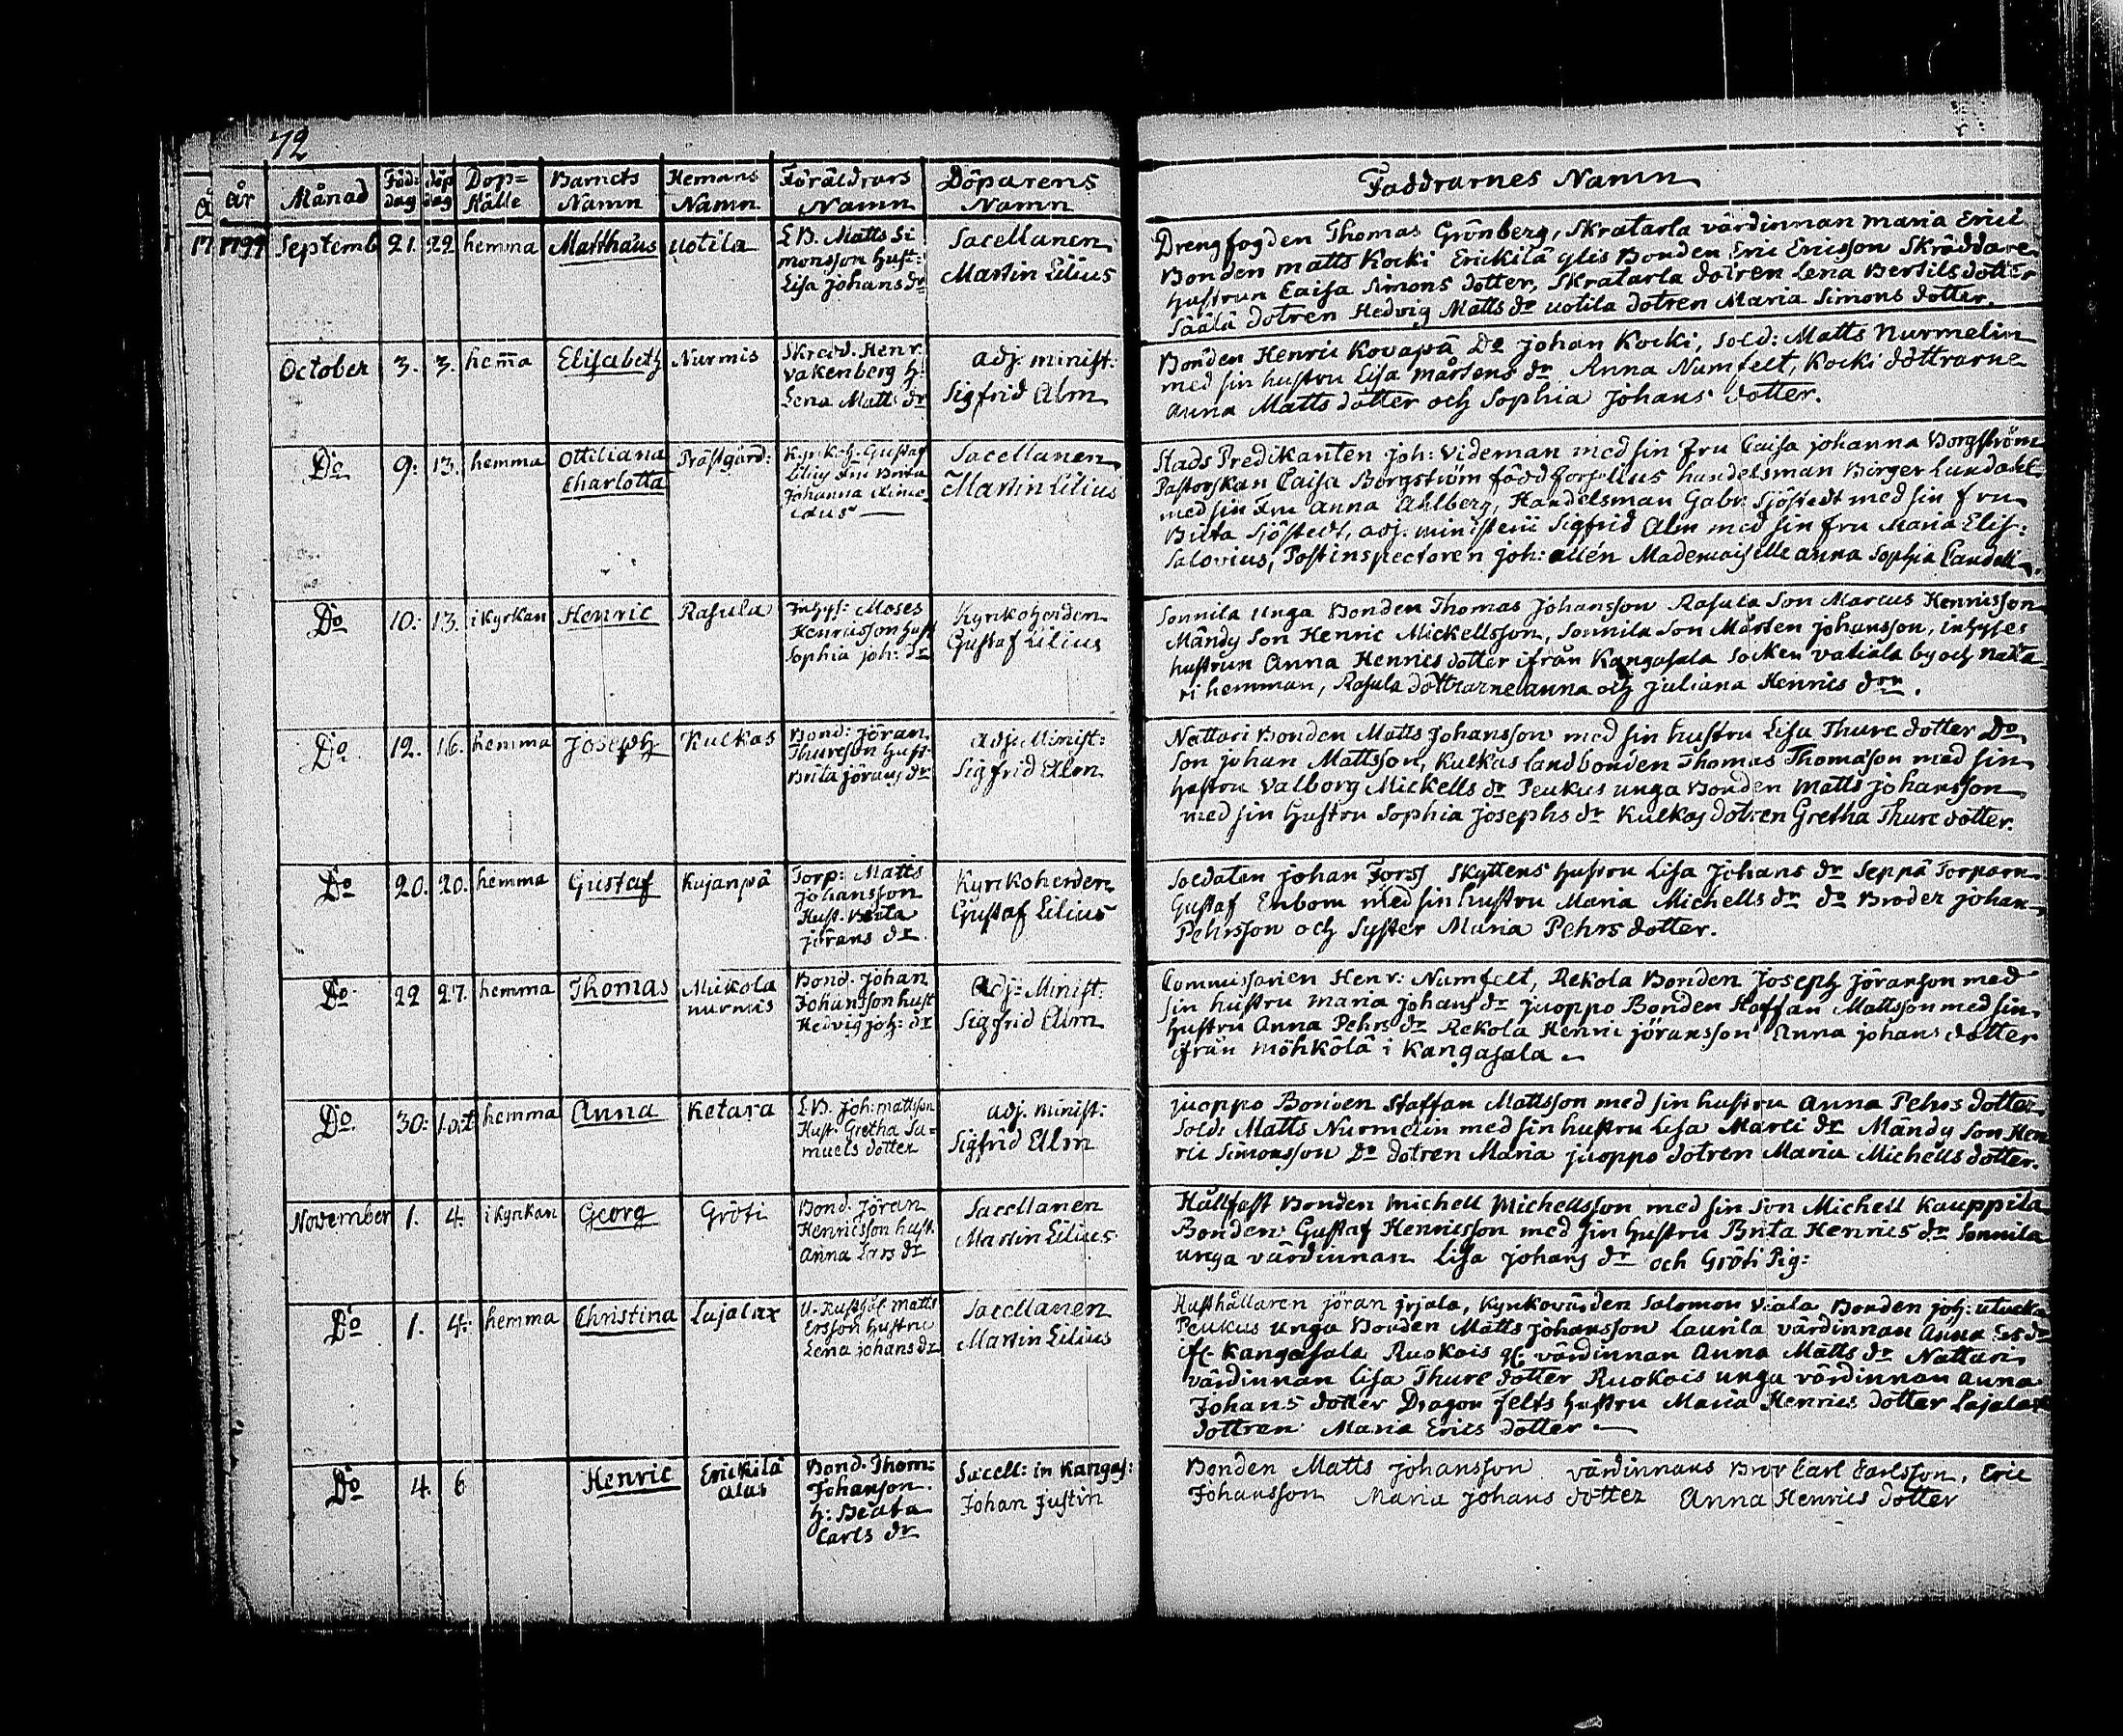 72
År Månad Föd: dag döp dag Dop= Källe Barnets Namn Hemans Namn Föräldrars Namn Döparens Namn Faddrarnes Namn
1799 Septemb 21. 22 hemma Matthäus Uotila
L B. Matts Si
monsson Hust:
Lisa Johans dr
Sacellanen
Martin Lilius
Drengfogden Thomas Grönberg, Skratarla värdinnan Maria Erics
Bonden Matts Kocki Erickilä Bonden Eric Ericsson Skräddare
hustrun Caisa Simons dotter, Skratarla dotren Lena Bertils dotter
Säälä dotren Hedvig Matts dr Uotila dotren Maria Simons dotter.
October 3. 3. hem̄a Elisabeth Nurmis
Skrädd. Henr.
Vakenberg H:
Lena Matt: dr
adj. minist:
Sigfrid Alm
Bonden Henric Kovapä Do Johan Kocki, Sold: Matts Nurmelin
med sin hustru Lisa Mårtens dr Anna Numfelt, Kocki döttrarne
Anna Matts dotter och Sophia Johans dotter.
Do 9: 13. hemma Ottiliana Charlotta Prästgård:
Kyrkoh. Gustaf
Lilius Fru Brita
Johanna
Sacellanen
Martin Lilius
Stads Predikanten Joh: Videman med sin Fru Caisa Johanna Borgström
Pastorskan Caisa Borgström född Forselius handelsman Börger Lundahl
med sin Fru Anna Ahlberg, Handelsman Gabr: Sjöstedt med sin fru
Brita Sjöstedt, adj. ministerii Sigfrid Alm med sin fru Maria Elis:
Salovius, Postinspectoren Joh: allén Mademoiselle Anna Sophia
Do 10. 13. i Kyrkan Henric Rasula
Inhys: Moses
Henricsson hust
Sophia Joh: dr
Kyrkoherden
Gustaf Lilius
Sonnila Unga Bonden Thomas Johansson Rasula Son Marcus Henricsson
Mändy Son Henric Mickellsson, Sonnila Son Mårten Johansson, inhyses
hustrun Anna Henrics dotter ifrån Kangasala Socken Vatiala by och Nata
ri hemman, Rasula döttrarne Anna och Juliana Henrics drn.
Do 12. 16. hemma Joseph Kulkas
Bond: Jöran
Thureson Hust:
Brita Jörans dr
adj: Minist:
Sigfrid Alm
Nattari Bonden Matts Johansson med sin hustru Lisa Thure dotter Do
Son Johan Mattsson, Kulkas landbonden Thomas Thomasson med sin
hustru Valborg Mickells dr Peukus unga Bonden Matts Johansson
med sin hustru Sophia Josephs dr Kulkas dotren Gretha Thure dotter.
Do 20. 20. hemma Gustaf Kujanpä
Torp: Matts
Johansson
Hust. Brita
Jörans dr
Kyrkoherden
Gustaf Lilius
Soldaten Johan Forss Skyttens hustru Lisa Johans dr Seppä Torparn
Gustaf Enbom med sin hustru Maria Michells dr do Broder Johan
Pehrsson och Syster Maria Pehrs dotter.
Do 22 27. hemma Thomas Mickola nurmis
Bond. Johan
Johansson hust
Hedvig Joh: dr
Adj: Minist:
Sigfrid Alm
Commissarien Henr: Numfelt, Rekola Bonden Joseph Jöranson med
sin hustru Maria Johans dr Juoppo Bonden Staffan Mattsson med sin
hustru Anna Pehrs dr Rekola Henric Jöransson Anna Johans dotter
ifrån Möhkölä i Kangasala
Do. 30: hemma Anna Ketara
L B. Joh: mattsson
Hust. Gretha Sa=
muels dotter
adj. minist:
Sigfrid Alm
Juoppo Bonden Staffan Mattsson med sin hustru Anna Pehrs dotter
Sold: Matts Nurmelin med sin hustru Lisa Marci dr Mandy Son Hen
ric Simonsson Do dotren Maria Juoppo dotren Maria Michells dotter.
November 1. 4. i kyrkan Georg Gröti
Bond. Jöran
Henricsson hust.
Anna Lars dr
Sacellanen
Martin Lilius
Hållfast Bonden Michell Michellsson med sin Son Michell Kauppila
Bonden: Gustaf Henricsson med sin hustru Brita Henrics dr Sonnila
unga värdinnan Lisa Johans dr och Gröti Pig:
Do 1. 4. hemma Christina Lajalax
Matts
Ersson hustru
Lena Johans dr
Sacellanen
Martin Lilius
Husthållaren Jöran Jrjala, Kyrkovärden Salomon Viala Bonden Joh: Utucka
Peukus unga Bonden Matts Johansson Laurila värdinnan Anna
Kangasala Ruokois värdinnan Anna Matts dr Nattari
värdinnan Lisa Thure dotter Ruokois unga värdinnan Anna
Johans dotter Dragon felts hustru Maria Henrics dotter Lajalax
dottren Maria Erics dotter
Do 4. 6 Henric Erickilä alas
Bond. Thom:
Johanson.
h: Beata
Carls dr
Sacell: in Kangas:
Johan Justin
Bonden Matts Johansson värdinnans Bror Carl Carlsson, Eric
Johansson Maria Johans dotter Anna Henrics dotter